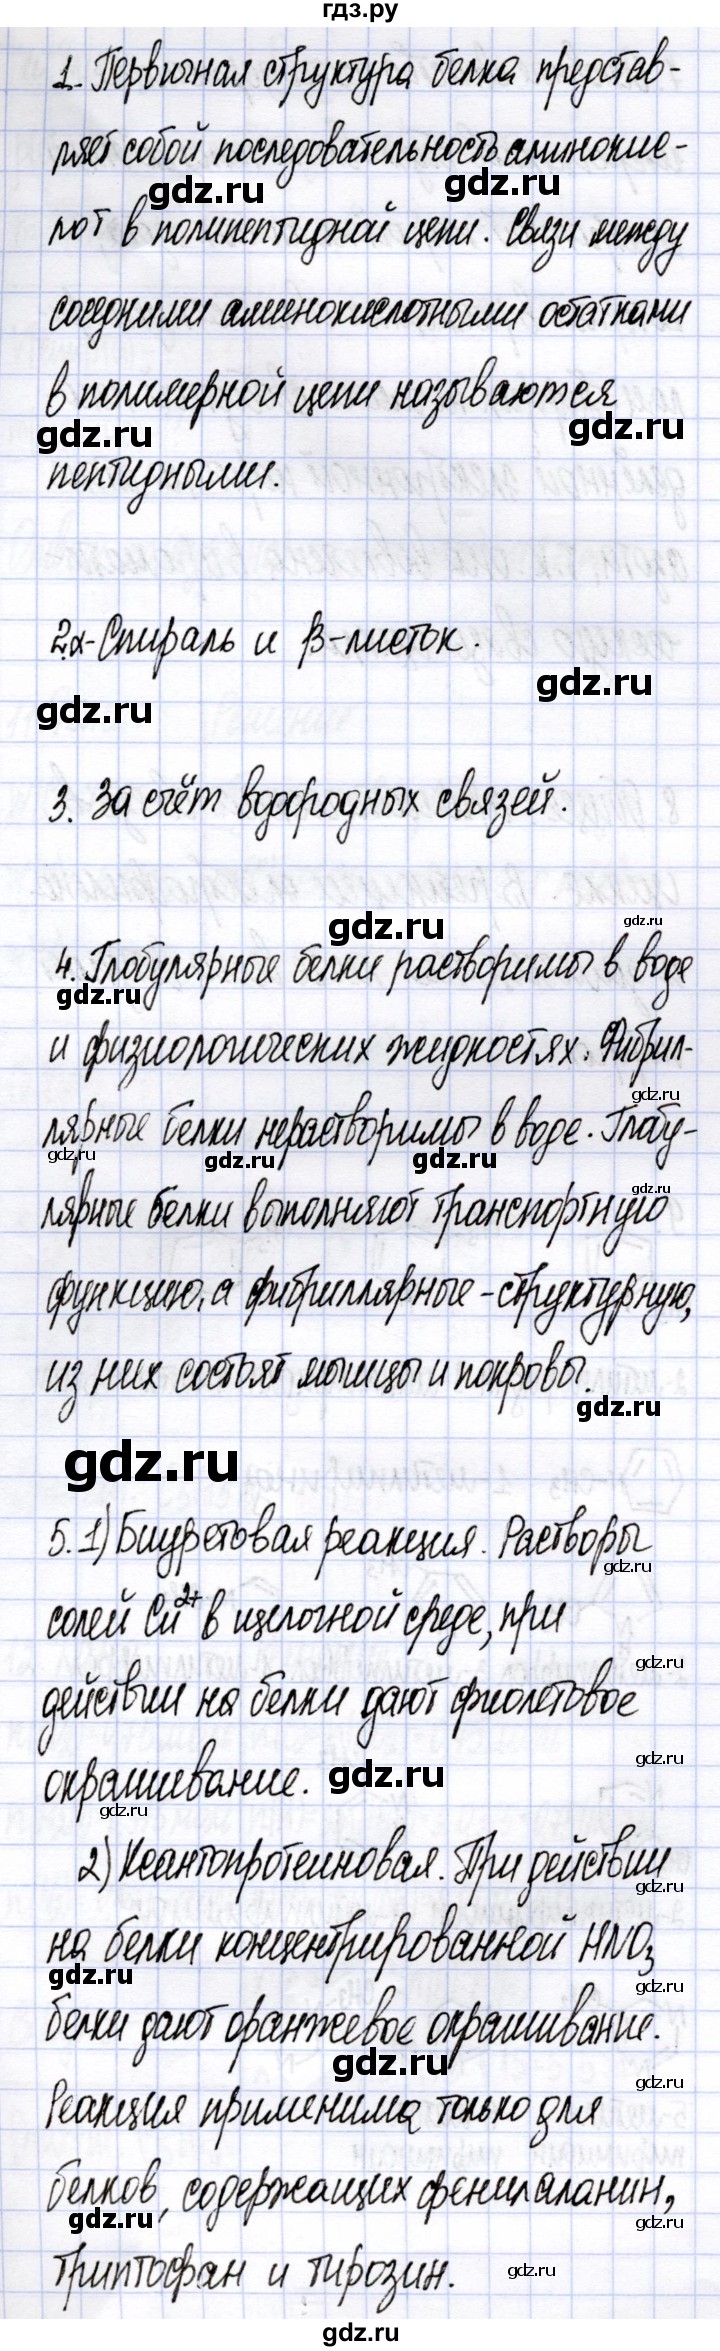 гдз.ру
1. Первичная структура белка представ-
ляет собой последовательность аминокис-
gdz.ru
gdz.ru
лот в полипептидной цепи. Связи между
соседними аминокислотными остатками
в полимерной цепи называются
gdz.ru
gdz.ru
пептидными.
2.α-Спираль и β-листок.
gdz.ru
gdz.ru
3. За счёт водородных связей.
gdz.ru
gdz.ru
4. Глобулярные белки растворимы в воде
gdz.ru
и физиологических жидкостях. Фибрил-
gdz.ru
лярные белки нерастворимы в воде. Глобу-
gdz.ru
gdz.ru
gdz.ru
gdz.ru
лярные белки выполняют транспортную
функцию, а фибриллярные - структурную,
из них состоят мышцы и покровы.
gdz.ru
gdz.ru
5. 1) Биуретовая реакция. Растворы
gdz.ru
солей Cu2+ в щелочной среде, при
gdz.ru
действии на белки дают фиолетовое
gdz.ru
окрашивание.
gdz.ru
gdz.ru
2) Ксантопротеиновая. При действии
gdz.ru
на белки концентрированной HNO3
gdz.ru
gdz.ru
белки дают оранжевое окрашивание.
gdz.ru
gdz.ru
Реакция применима только для
белков, содержащих фенилаланин,
gdz.ru
gdz.ru
триптофан и тирозин.
gdz.ru
гдз.ру